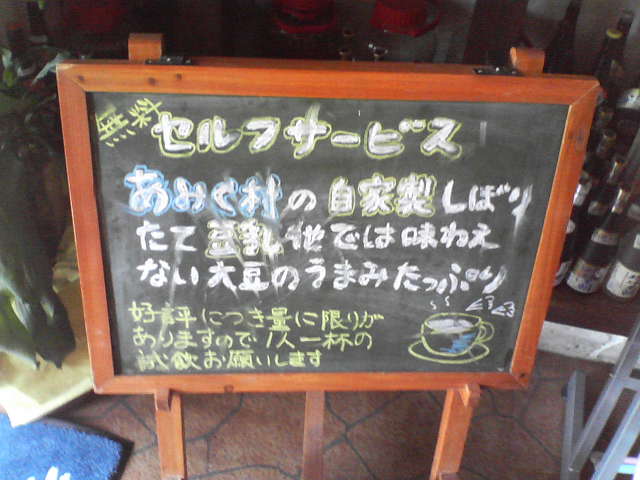 無料 セルフサービス
あみぐ村の自家製しぼり
たて豆乳 他では味わえ
ない大豆のうまみたっぷり
好評につき量に限りが
ありますので1人一杯の
試飲お願いします